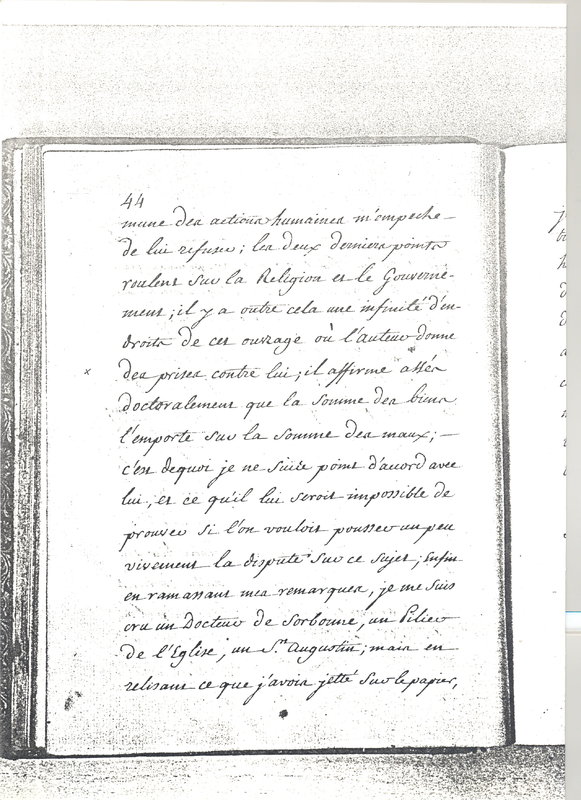 44
mune des actions humaines m'empeche
de lui refuser; les deux derniers points
roulent sur la Religion et le Gouverne-
ment; il y a outre cela une infinité d'en-
droits de cet ouvrage où l'auteur donne
x des prises contre lui; il affirme assés
doctoralement que la somme des biens
l'emporte sur la somme des maux; —
c'est dequoi je ne suis point d'acord avec
lui, et ce qu'il lui seroit impossible de
prouver si l'on vouloit pousser un peu
vivement la dispute sur ce sujet; Enfin
en ramassant mes remarques, je me suis
cru un Docteur de Sorbonne, un Pilier
de l'Eglise, un St. Augustin; mais en
relisant ce que j'avois jetté sur le papier,